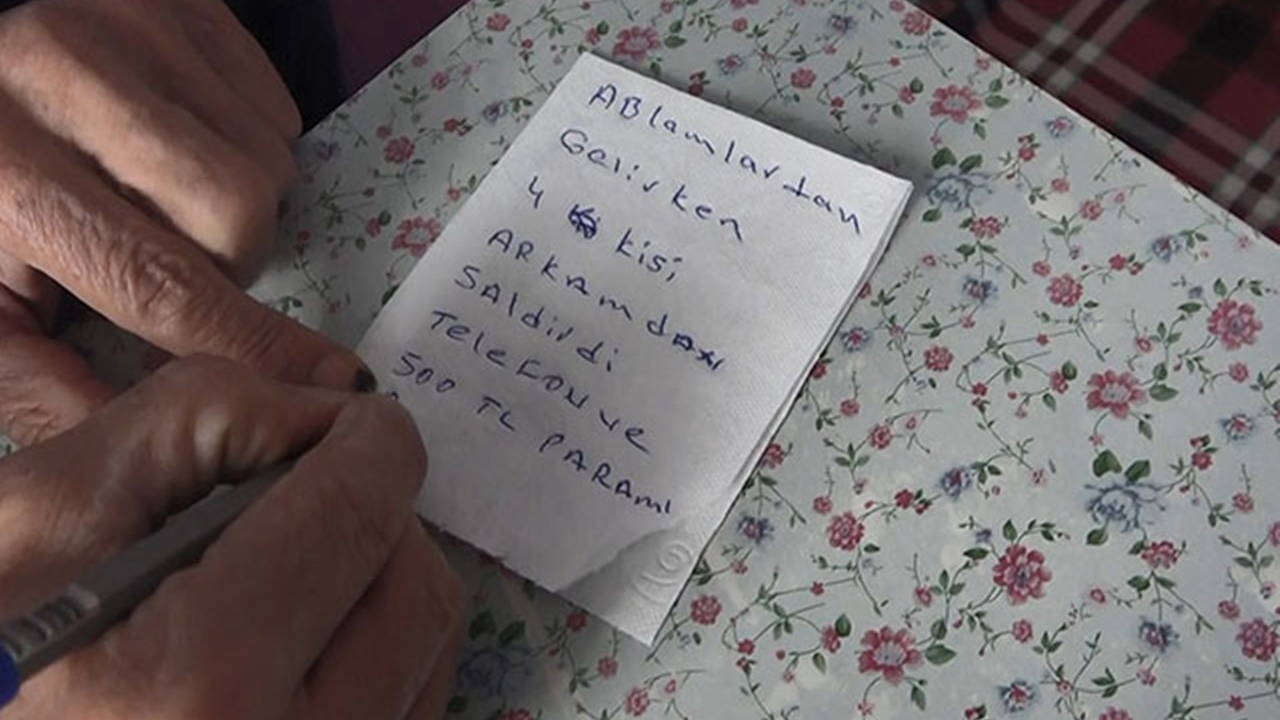 ABlamlartan
Gelirken
4 kisi
ARKAmdan
SAldirdi
TeleFON ve
500 TL PARAmı